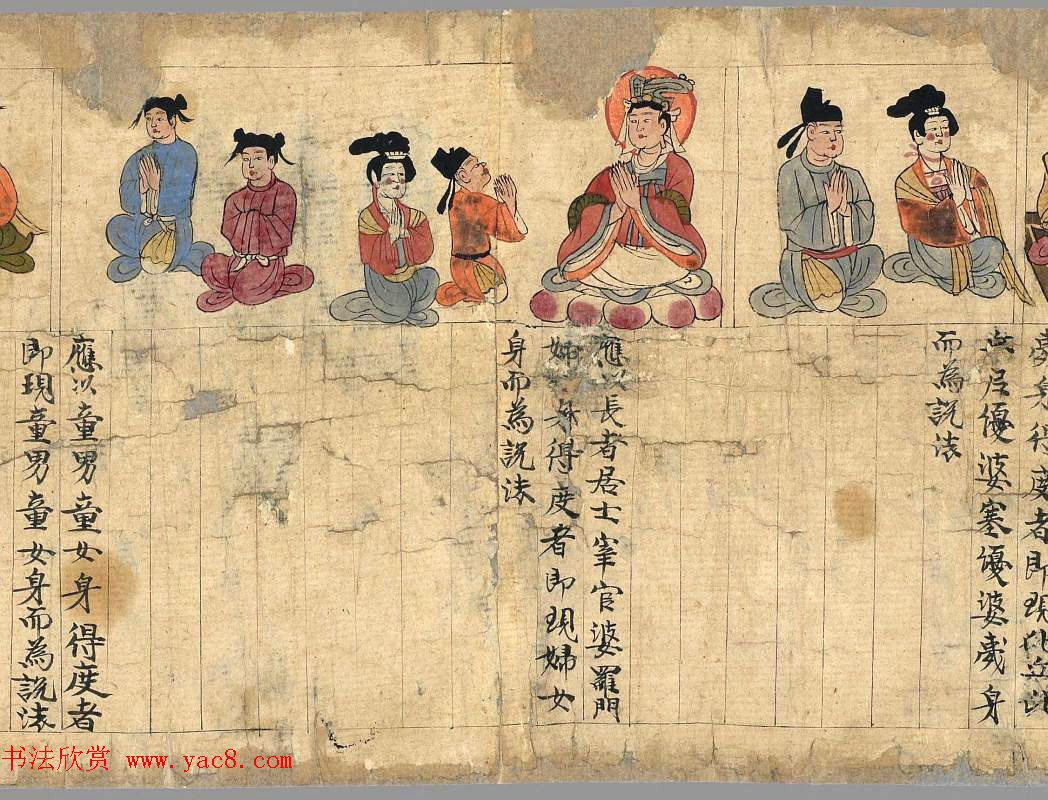 婆身得度者即現比丘比
丘尼優婆塞優婆夷身
而為說法
應以長者居士宰官婆羅門
婦女身得度者即現婦女
身而為說法
應以童男童女身得度者
即現童男童女身而為說法
书法欣赏 www.yac8.com